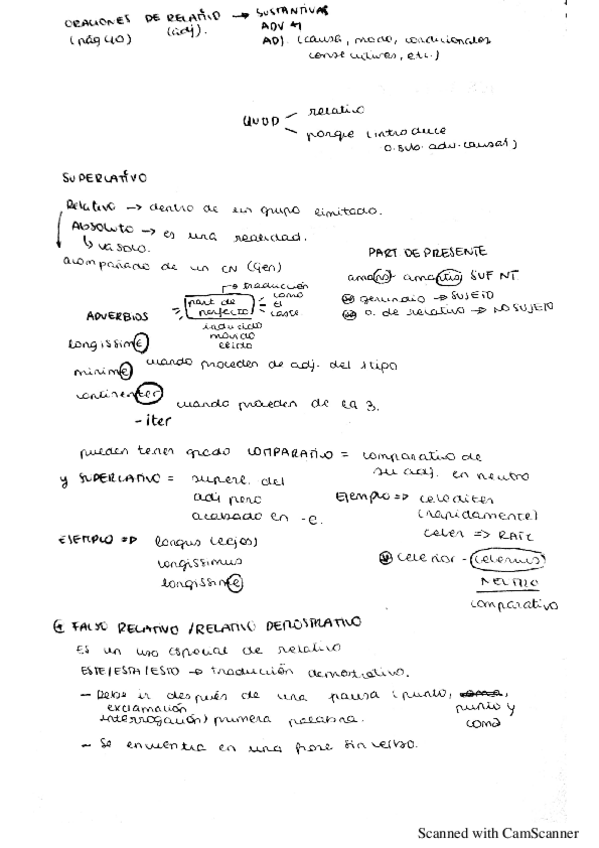 ORACIONES DE RELATIVO → SUSTANTIVAS
(pág 40) (adj). ADV
ADJ. (causa, modo, condicionales
consecutivas, etc.)
QUOD relativo
porque (introduce
o. sub. adv. causal)
SUPERLATIVO
Relativo → dentro de un grupo limitado.
ABSOLUTO → es una realidad.
↳ va solo.
acompañado de un CN (Gen)
PART DE PRESENTE
amans - amantis SUF NT
gerundio → SUJETO
o. de relativo → NO SUJETO
→ traducción
part de perfecto
como
el
ADVERBIOS
longissime
minime cuando proceden de adj. del 1 tipo
cuando proceden de la 3.
- iter
pueden tener grado COMPARATIVO = comparativo de
su adj. en neutro
y SUPERLATIVO = superl. del
adj pero
acabado en -e.
Ejemplo =>
(rápidamente)
celer => RAIZ
celerior - celerius
NEUTRO
comparativo
EJEMPLO => longus (lejos)
longissimus
longissime
FALSO RELATIVO / RELATIVO DEMOSTRATIVO
Es un uso especial de relativo
ESTE/ESTA/ESTO → traducción demostrativo.
- Debe ir después de una pausa (punto, coma, punto y coma
exclamación
interrogación) primera palabra.
- Se encuentra en una frase sin verbo.
Scanned with CamScanner